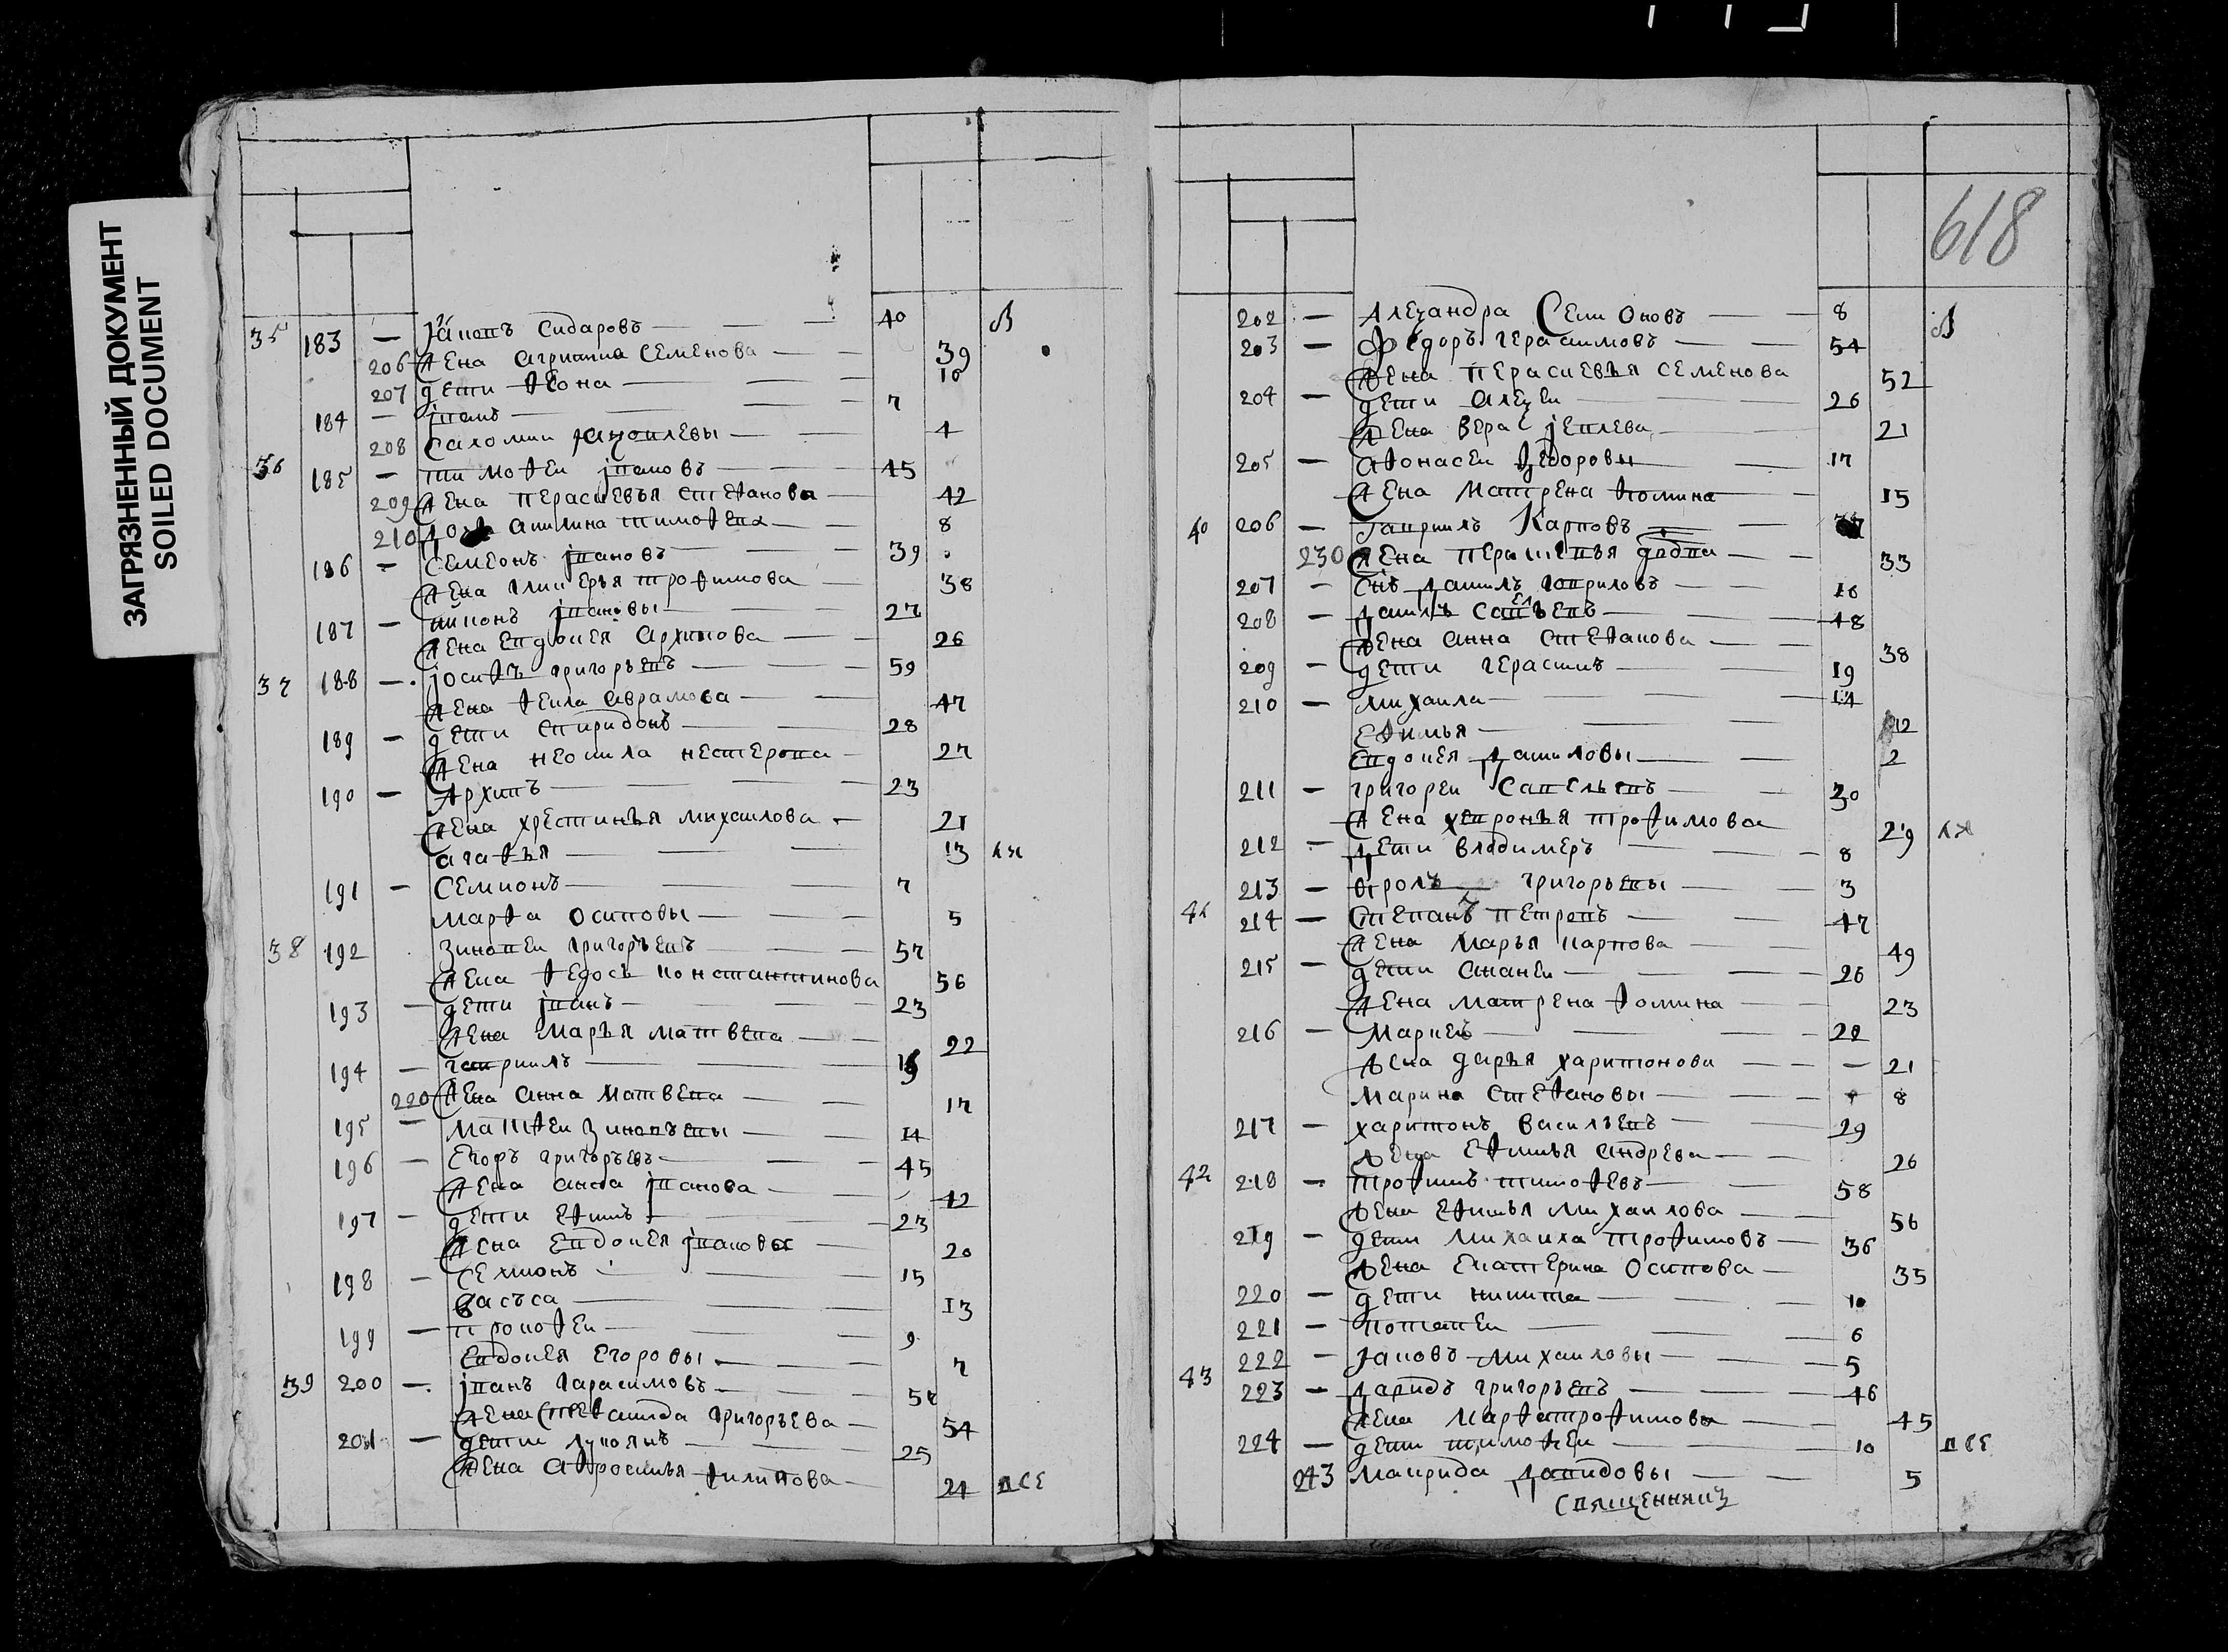 ЗАГРЯЗНЕННЫЙ ДОКУМЕНТ
SOILED DOCUMENT
35 183 — Яковъ Сидаровъ — 40 В
206 жена агрипина Семенова — 39
207 дети Феона — 10
184 — Іванъ — 7
208 Саломии — 4
36 185 — тимофеи Івановъ — 45
209 жена Парасчевья Стефанова — 42
210 акилина тимофева — 8
186 — Семеонъ Івановъ — 39
жена гликерья трофимова — 38
187 — никонъ Івановы — 27
жена Евдокея Архипова — 26
37 188 — Іосифъ григорьевъ — 59
жена Аврамова — 47
189 — дети Спиридонъ — 28
жена неонила нестерова — 27
190 — Архипъ — 23
жена хрестинья михаилова — 21
агафья — 13
191 — Семионъ — 7
марфа осиповы — 5
38 192 Зиновеи григорьевъ — 57
жена Федосья константинова 56
193 — дети Іванъ — 23
жена марья матвева — 22
194 — гавриилъ —
220 жена анна матвева — 17
195 — матфеи Зиновьевы — 11
196 — Егоръ григорьевъ — 45
жена анна Іванова — 42
197 — дети Ефимъ — 23
жена Евдокея Івановы — 20
198 — Семионъ — 15
васъса — 13
199 — прокофеи — 9
Евдокея Егоровы — 7
39 200 — Іванъ гарасимовъ —
жена Степанида григорьева — 54
201 — дети лукоянъ — 25
жена афросинья филипова — 24 все
618
202 — Алеѯандра Семионовъ — 8 В
203 — Федоръ герасимовъ — 54
жена Парасчевья Семенова 52
204 — дети алеѯеи — 26
жена вера — 21
205 — афонасеи Федоровы — 17
жена матрена Фомина — 15
40 206 — гавриилъ Карповъ —
230 жена — 33
207 — сынъ данилъ гавриловъ — 16
208 — данилъ Савельевъ — 48
жена анна Стефанова — 38
209 — дети герасимъ — 19
210 — михаила — 14
Ефимья — 12
Евдокея даниловы — 2
211 — григореи Савельевъ — 30
жена хевронья трофимова 29
212 — дети владимеръ — 8
213 — фролъ григорьевы — 3
41 214 — Степанъ петровъ — 47
жена марья карпова — 49
215 — дети ананеи — 26
жена матрена фомина — 23
216 — Маркей — 22
жена дарья харитонова — 21
Марина Стефановы — 8
217 — харитонъ васильевъ — 29
жена Ефимья андрева — 26
42 218 — трофимъ тимофевъ — 58
жена Ефимья михаилова — 56
219 — дети михаила трофимовъ — 36
жена Екатерина Осипова — 35
220 — дети никита — 10
221 — потапеи — 6
222 — Іаковъ михаиловы — 5
43 223 — давидъ григорьевъ — 46
жена марфа трофимова — 45
224 — дети тимофеи — 10 все
243 мавриДа давидовы — 5
священникъ